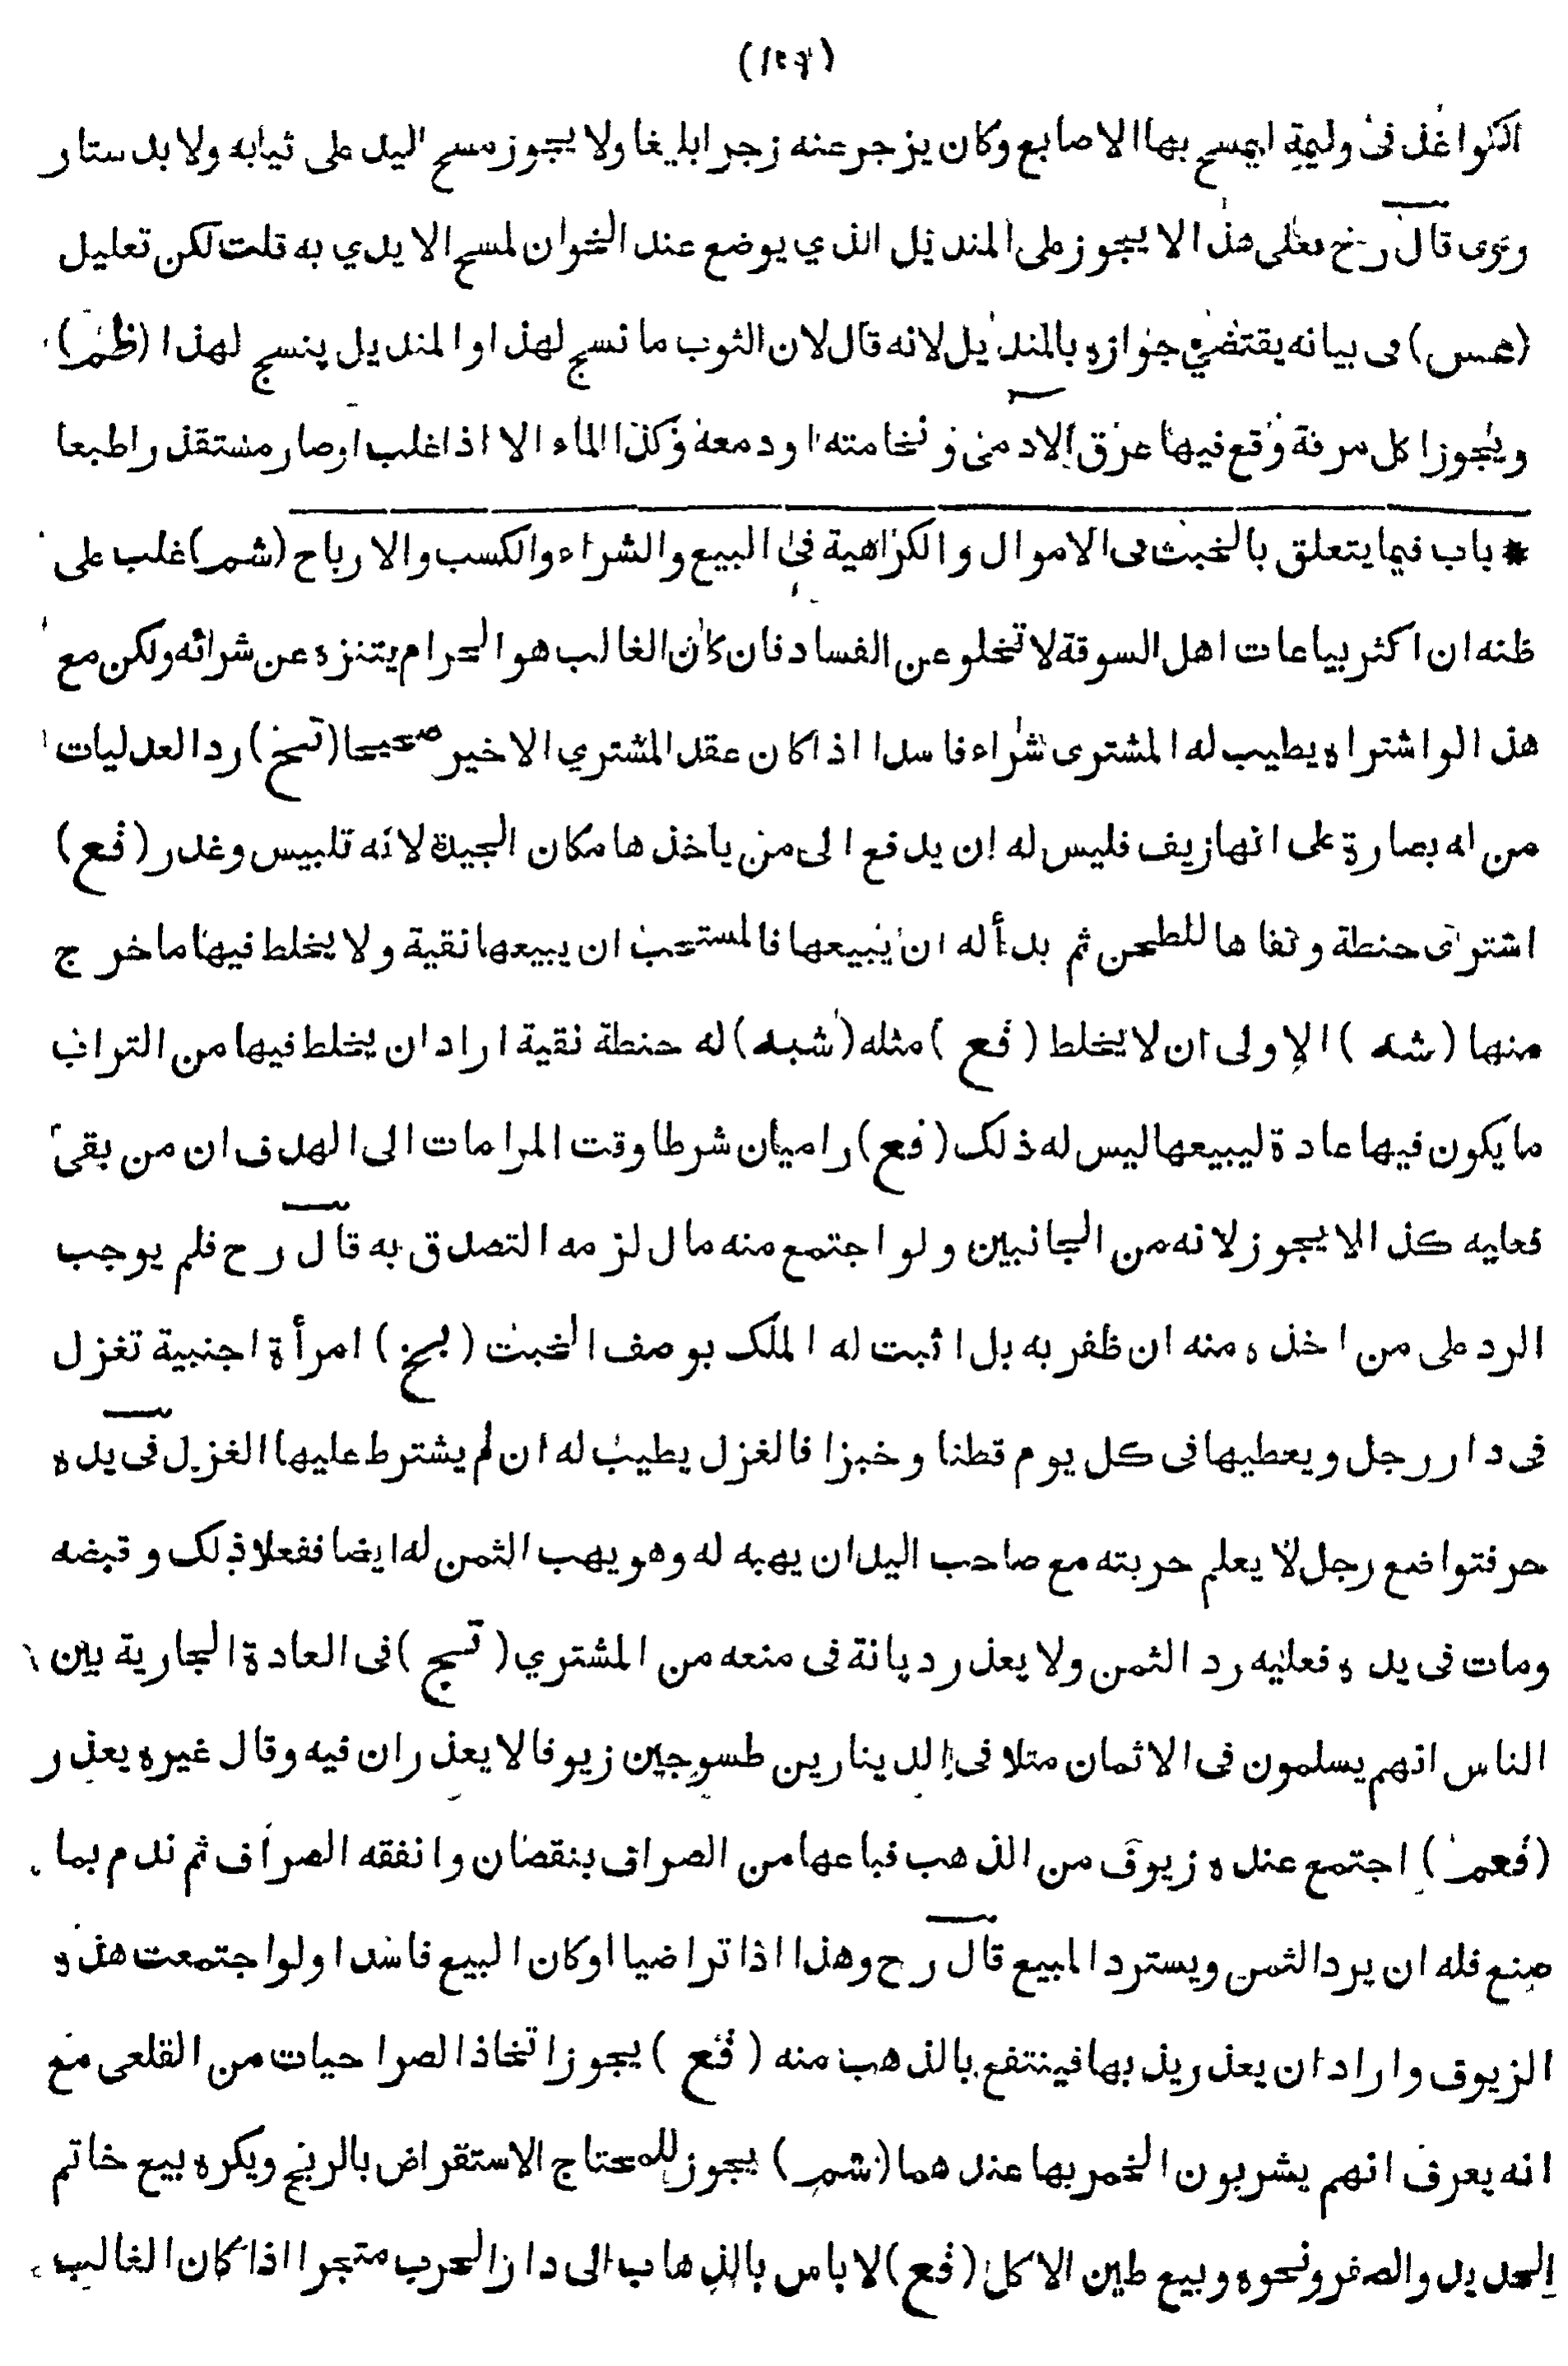 الكواغذ فى وليمة ليمسح بها الاصابع وكان يزجر عنه زجرا بليغا ولا يجوز مسح اليد على ثيابه ولا بدستار
قال رح فعلى هذا لا يجوز على المنديل الذي يوضع عند الخوان لمسح الايدي به قلت لكن تعليل
(عس) فى بيانه يقتضي جوازه بالمنديل لانه قال لان الثوب ما نسج لهذا والمنديل ينسج لهذا (ظم)
ويجوز اكل مرقة وقع فيها عرق الادمى ونخامته او دمعه وكذا الماء الا اذا غلب وصار مستقذرا طبعا
* باب فيما يتعلق بالخبث فى الاموال والكراهية فى البيع والشراء والكسب والارباح (شم) غلب على
ظنه ان اكثر بياعات اهل السوقة لا تخلو عن الفساد فان كان الغالب هو الحرام يتنزه عن شرائه ولكن مع
هذا لو اشتراه يطيب له المشترى شراء فاسدا اذا كان عقد المشتري الاخير صحيحا (تسخ) رد العدليات
من له بصارة على انها زيف فليس له ان يدفع الى من ياخذها مكان الجيدة لانه تلبيس وغدر (فع)
اشترى حنطة ونقاها للطحن ثم بدأ له ان يبيعها فالمستحب ان يبيعها نقية ولا يخلط فيها ما خرج
منها (شه) الاولى ان لا يخلط (فع) مثله (شبه) له حنطة نقية اراد ان يخلط فيها من التراب
ما يكون فيها عادة ليبيعها ليس له ذلك (فع) راميان شرطا وقت المرامات الى الهدف ان من بقى
فعليه كذا لا يجوز لانه من الجانبين ولو اجتمع منه مال لزمه التصدق به قال رح فلم يوجب
الرد على من اخذه منه ان ظفر به بل اثبت له الملك بوصف الخبث (بخ) امرأة اجنبية تغزل
فى دار رجل ويعطيها فى كل يوم قطنا وخبزا فالغزل يطيب له ان لم يشترط عليها الغزل فى يده
حر فتواضع رجل لا يعلم حريته مع صاحب اليد ان يهبه له وهو يهب الثمن له ايضا ففعلا ذلك وقبضه
ومات فى يده فعليه رد الثمن ولا يعذر ديانة فى منعه من المشتري (تسج) فى العادة الجارية بين
الناس انهم يسلمون فى الاثمان مثلا فى الدينارين طسوجين زيوفا لا يعذران فيه وقال غيره يعذر
(فعم) اجتمع عنده زيوف من الذهب فباعها من الصراف بنقصان وانفقه الصراف ثم ندم بما
صنع فله ان يرد الثمن ويسترد المبيع قال رح وهذا اذا تراضيا او كان البيع فاسدا ولو اجتمعت هذه
الزيوف واراد ان بها فينتفع بالذهب منه (فع) يجوز اتخاذ الصراحيات من القلعى مع
انه يعرف انهم يشربون الخمر بها عندهما (شم) يجوز للمحتاج الاستقراض بالربح ويكره بيع خاتم
الحديد والصفر ونحوه وبيع طين الاكل (فع) لا باس بالذهاب الى دار الحرب متجرا اذا كان الغالب